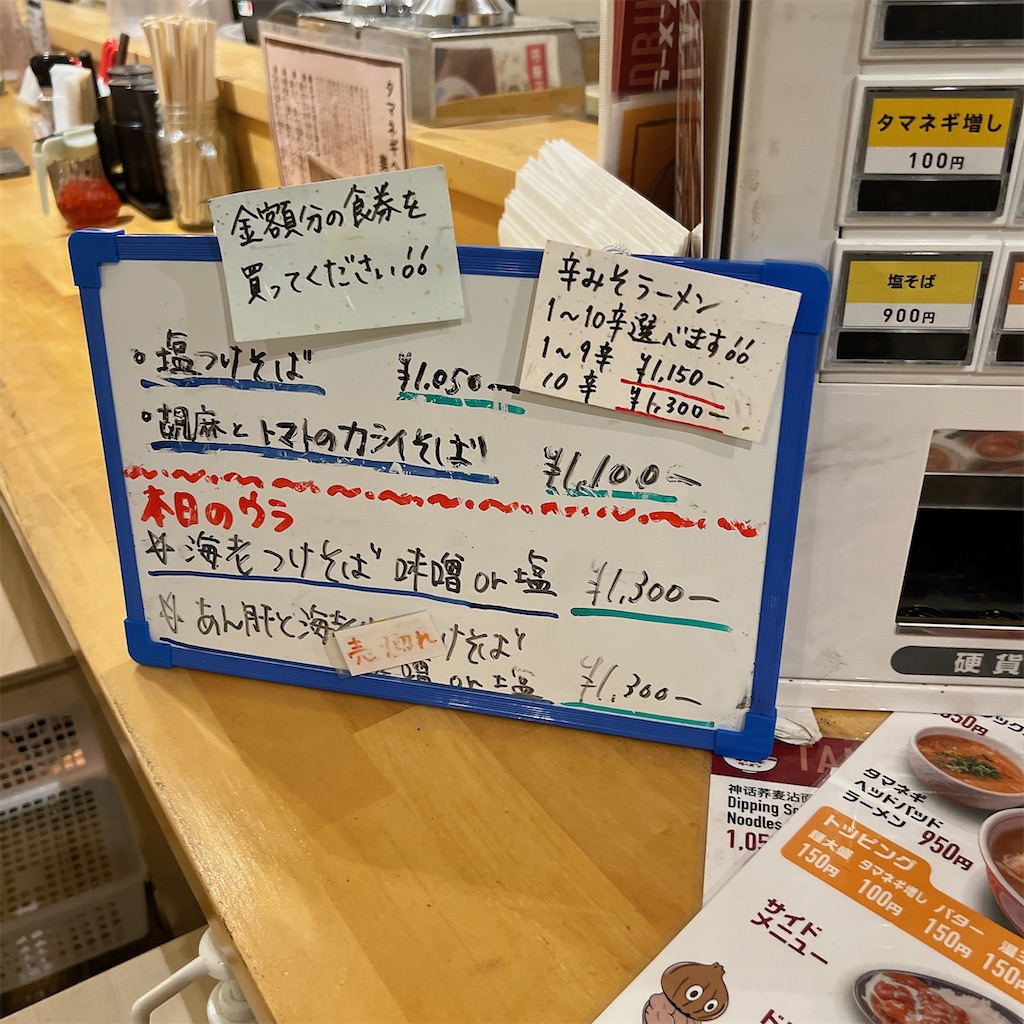 タマネギ
金額分の食券を
買ってください!!
辛みそラーメン
1～10辛選べます!!
1～9辛 ¥1,150-
10辛 ¥1,300-
・塩つけそば ¥1,050-
・胡麻とトマトのカライそば ¥1,100-
本日のウラ
☆海老つけそば 味噌or塩 ¥1,300-
☆あん肝と海老 けそば
売切れ
噌 or 塩 ¥1,300-
タマネギ増し
100円
塩そば
900円
硬貨
神话荞麦沾面
Dipping
Noodles
タマネギ
ヘッドバッド
ラーメン 950円
トッピング
麺大盛 タマネギ増し バター
150円 100円 150円 150円
サイド
メニュー